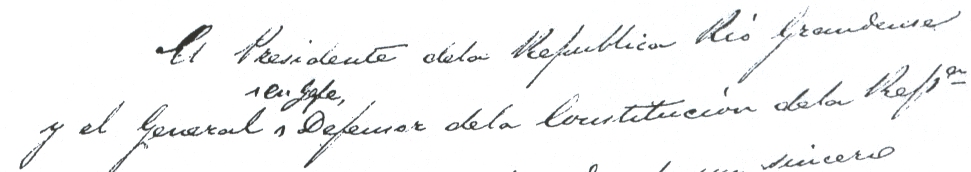 El Presidente dela Republica Rio Grandense
en Gefe,
y el General Defensor dela Constitución dela Repcn
sincero